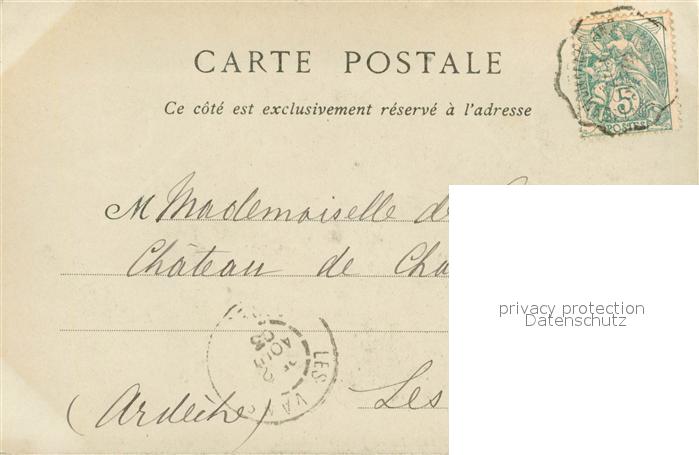 CARTE POSTALE
Ce côté est exclusivement réservé à l'adresse
5c
POSTES
M Mademoiselle de
Château de Cha
privacy protection
Datenschutz
LES VANS
2 AOUT 03
(Ardèche) Les